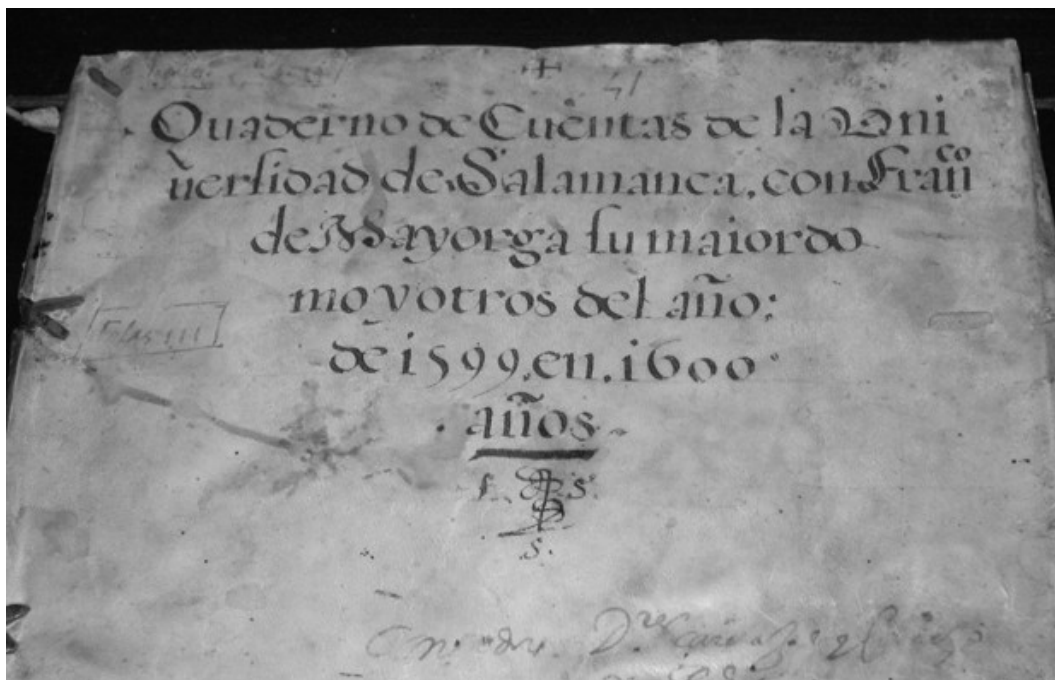 41
Quaderno de Cuentas de la Uni
uersidad de Salamanca, con Fran^co
de Mayorga su maiordo
mo y otros del año:
de 1599. en. 1600
. años
s. s.
s.
D^res